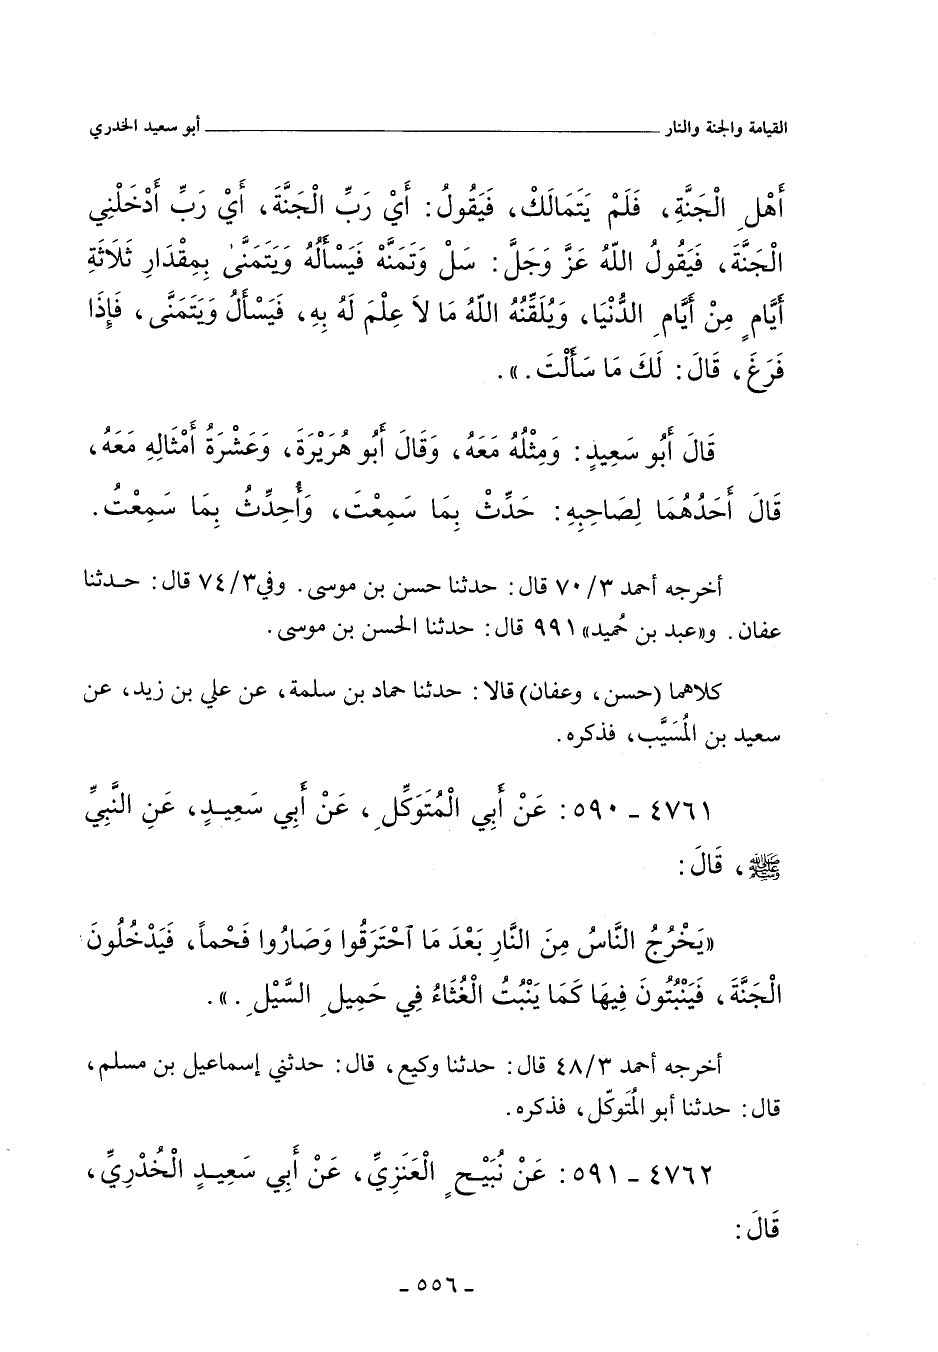 القيامة والجنة والنار ــــــ أبو سعيد الخدري
أَهْلِ الْجَنَّةِ، فَلَمْ يَتَمَالَكْ، فَيَقُولُ: أَيْ رَبِّ الْجَنَّةَ، أَيْ رَبِّ أَدْخَلْنِي
الْجَنَّةَ، فَيَقُولُ اللّهُ عَزَّ وَجَلَّ: سَلْ وَتَمَنَّهْ فَيَسْأَلُهُ وَيَتَمَنَّىٰ بِمِقْدَارِ ثَلَاثَةِ
أَيَّامٍ مِنْ أَيَّامِ الدُّنْيَا، وَيُلَقِّنُهُ اللّهُ مَا لاَ عِلْمَ لَهُ بِهِ، فَيَسْأَلُ وَيَتَمَنَّى، فَإِذَا
فَرَغَ، قَالَ: لَكَ مَا سَأَلْتَ.».
قَالَ أَبُو سَعِيدٍ: وَمِثْلُهُ مَعَهُ، وَقَالَ أَبُو هُرَيْرَةَ، وَعَشْرَةُ أَمْثَالِهِ مَعَهُ،
قَالَ أَحَدُهُمَا لِصَاحِبِهِ: حَدِّثْ بِمَا سَمِعْتَ، وَأُحَدِّثُ بِمَا سَمِعْتُ.
أخرجه أحمد ٧٠/٣ قال: حدثنا حسن بن موسى. وفي ٧٤/٣ قال: حدثنا
عفان. و«عبد بن حُميد» ٩٩١ قال: حدثنا الحسن بن موسى.
كلاهما (حسن، وعفان) قالا: حدثنا حماد بن سلمة، عن علي بن زيد، عن
سعيد بن المُسَيَّب، فذكره.
٤٧٦١ ـ ٥٩٠: عَنْ أَبِي الْمُتَوَكِّلِ، عَنْ أَبِي سَعِيدٍ، عَنِ النَّبِيِّ
ﷺ، قَالَ:
«يَخْرُجُ النَّاسُ مِنَ النَّارِ بَعْدَ مَا ٱحْتَرَقُوا وَصَارُوا فَحْماً، فَيَدْخُلُونَ
الْجَنَّةَ، فَيَنْبُتُونَ فِيهَا كَمَا يَنْبُتُ الْغُثَاءُ فِي حَمِيلِ السَّيْلِ.».
أخرجه أحمد ٤٨/٣ قال: حدثنا وكيع، قال: حدثني إسماعيل بن مسلم،
قال: حدثنا أبو المُتَوكّل، فذكره.
٤٧٦٢ ـ ٥٩١: عَنْ نُبَيْحٍ الْعَنَزِيِّ، عَنْ أَبِي سَعِيدٍ الْخُدْرِيِّ،
قَالَ:
ـ ٥٥٦ ـ